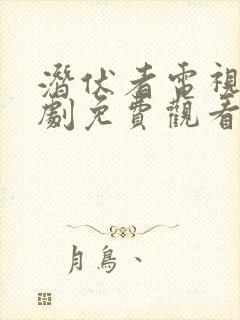 潛伏者電視
劇免費觀看
月鳥、